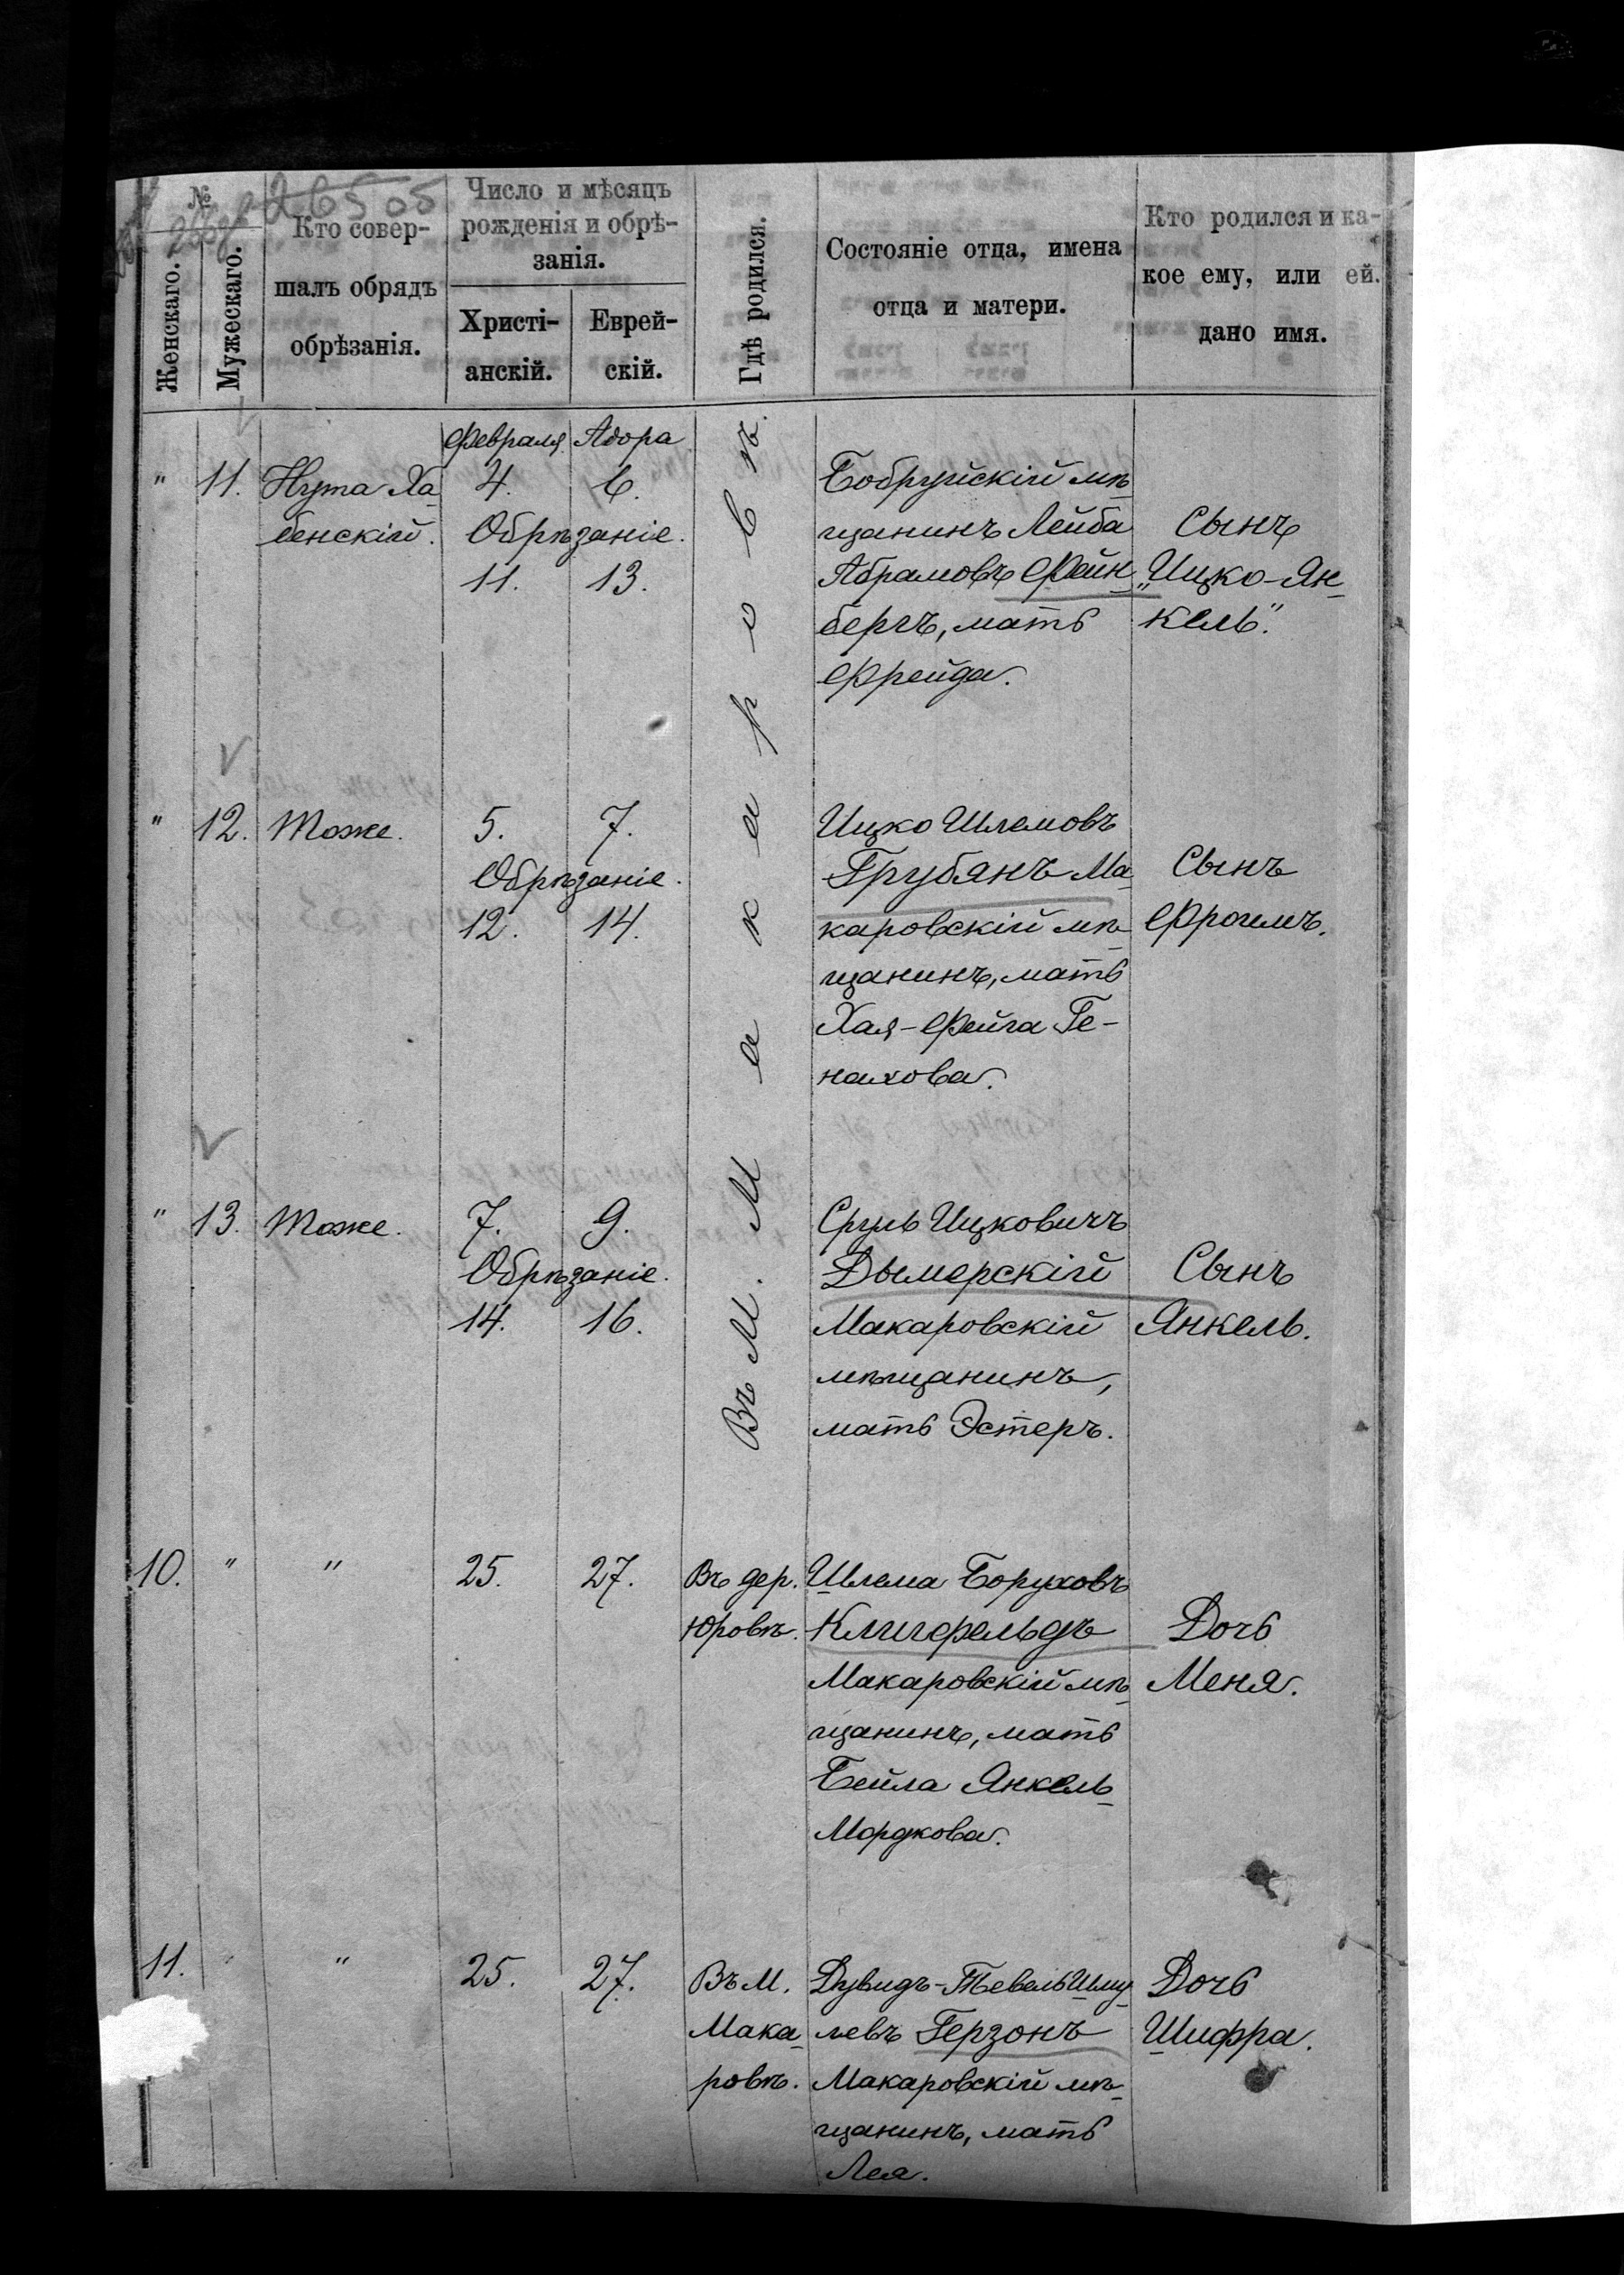 №
26505
Женскаго.
Мужескаго.
Кто совер-
шалъ обрядъ
обрѣзанія.
Число и мѣсяцъ
рожденія и обрѣ-
занія.
Христі-
анскій.
Еврей-
скій.
Гдѣ родился.
Состояніе отца, имена
отца и матери.
Кто родился и ка-
кое ему, или ей.
дано имя.
Въ М. Макаровѣ.
Февраля. Адора
" 11. Нута Ха
бенскій.
4. 6.
Обрѣзаніе.
11. 13.
Бобруйскій мѣ
щанинъ Лейба
Абрамовъ Файн
бергъ, мать
Фрейда.
Сынъ
„Ицко-Ян
кель".
" 12. Тоже. 5. 7.
Обрѣзаніе.
12. 14.
Ицко Шлемовъ
Грубянъ Ма
каровскій мѣ
щанинъ, мать
Хая-Фейга Ге-
нахова.
Сынъ
Фроимъ.
" 13. Тоже. 7. 9.
Обрѣзаніе.
14. 16.
Сруль Ицковичъ
Дымерскій
Макаровскій
мѣщанинъ,
мать Эстеръ.
Сынъ
Янкель.
10. " " 25. 27.
Въ дер.
Юровѣ.
Шлема Боруховъ
Клигфельдъ
Макаровскій мѣ
щанинъ, мать
Бейла Янкель
Мордкова.
Дочь
Меня.
11. " " 25. 27.
Въ М.
Мака
ровѣ.
Дувидъ-Тевель Шму
левъ Герзонъ
Макаровскій мѣ-
щанинъ, мать
Лея.
Дочь
Шифра.